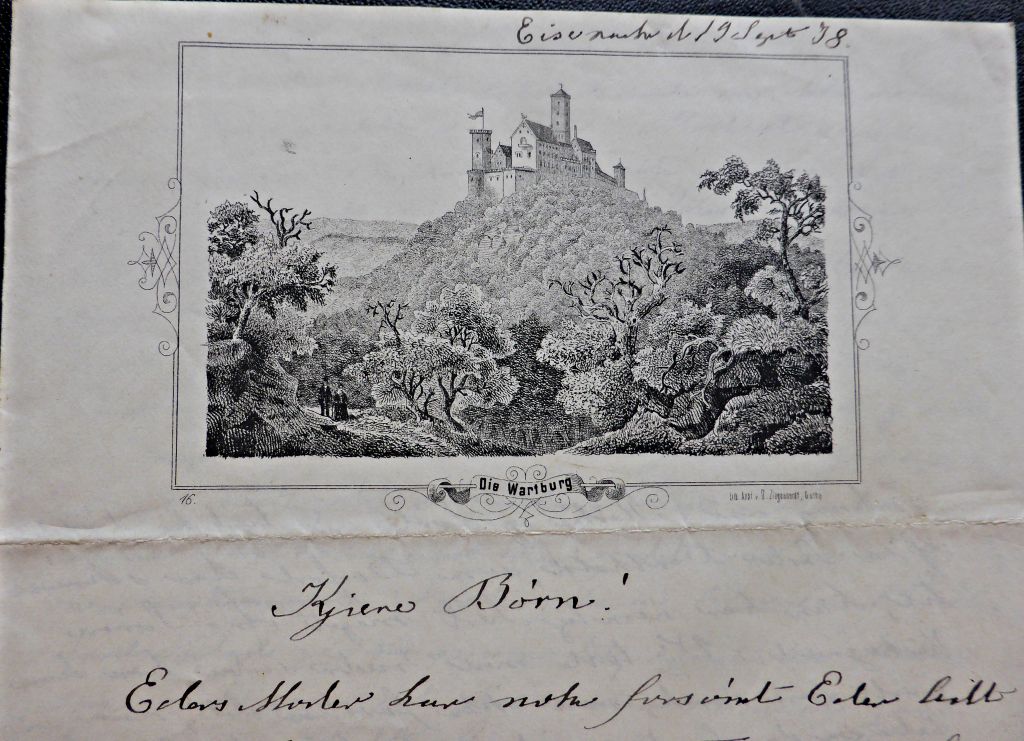 Eisenach d 19 Sept 78.
Die Wartburg
16.
Lith. Anst. v.
Kjiere Børn!
Eders Moder har nok forsømt Eder lidt